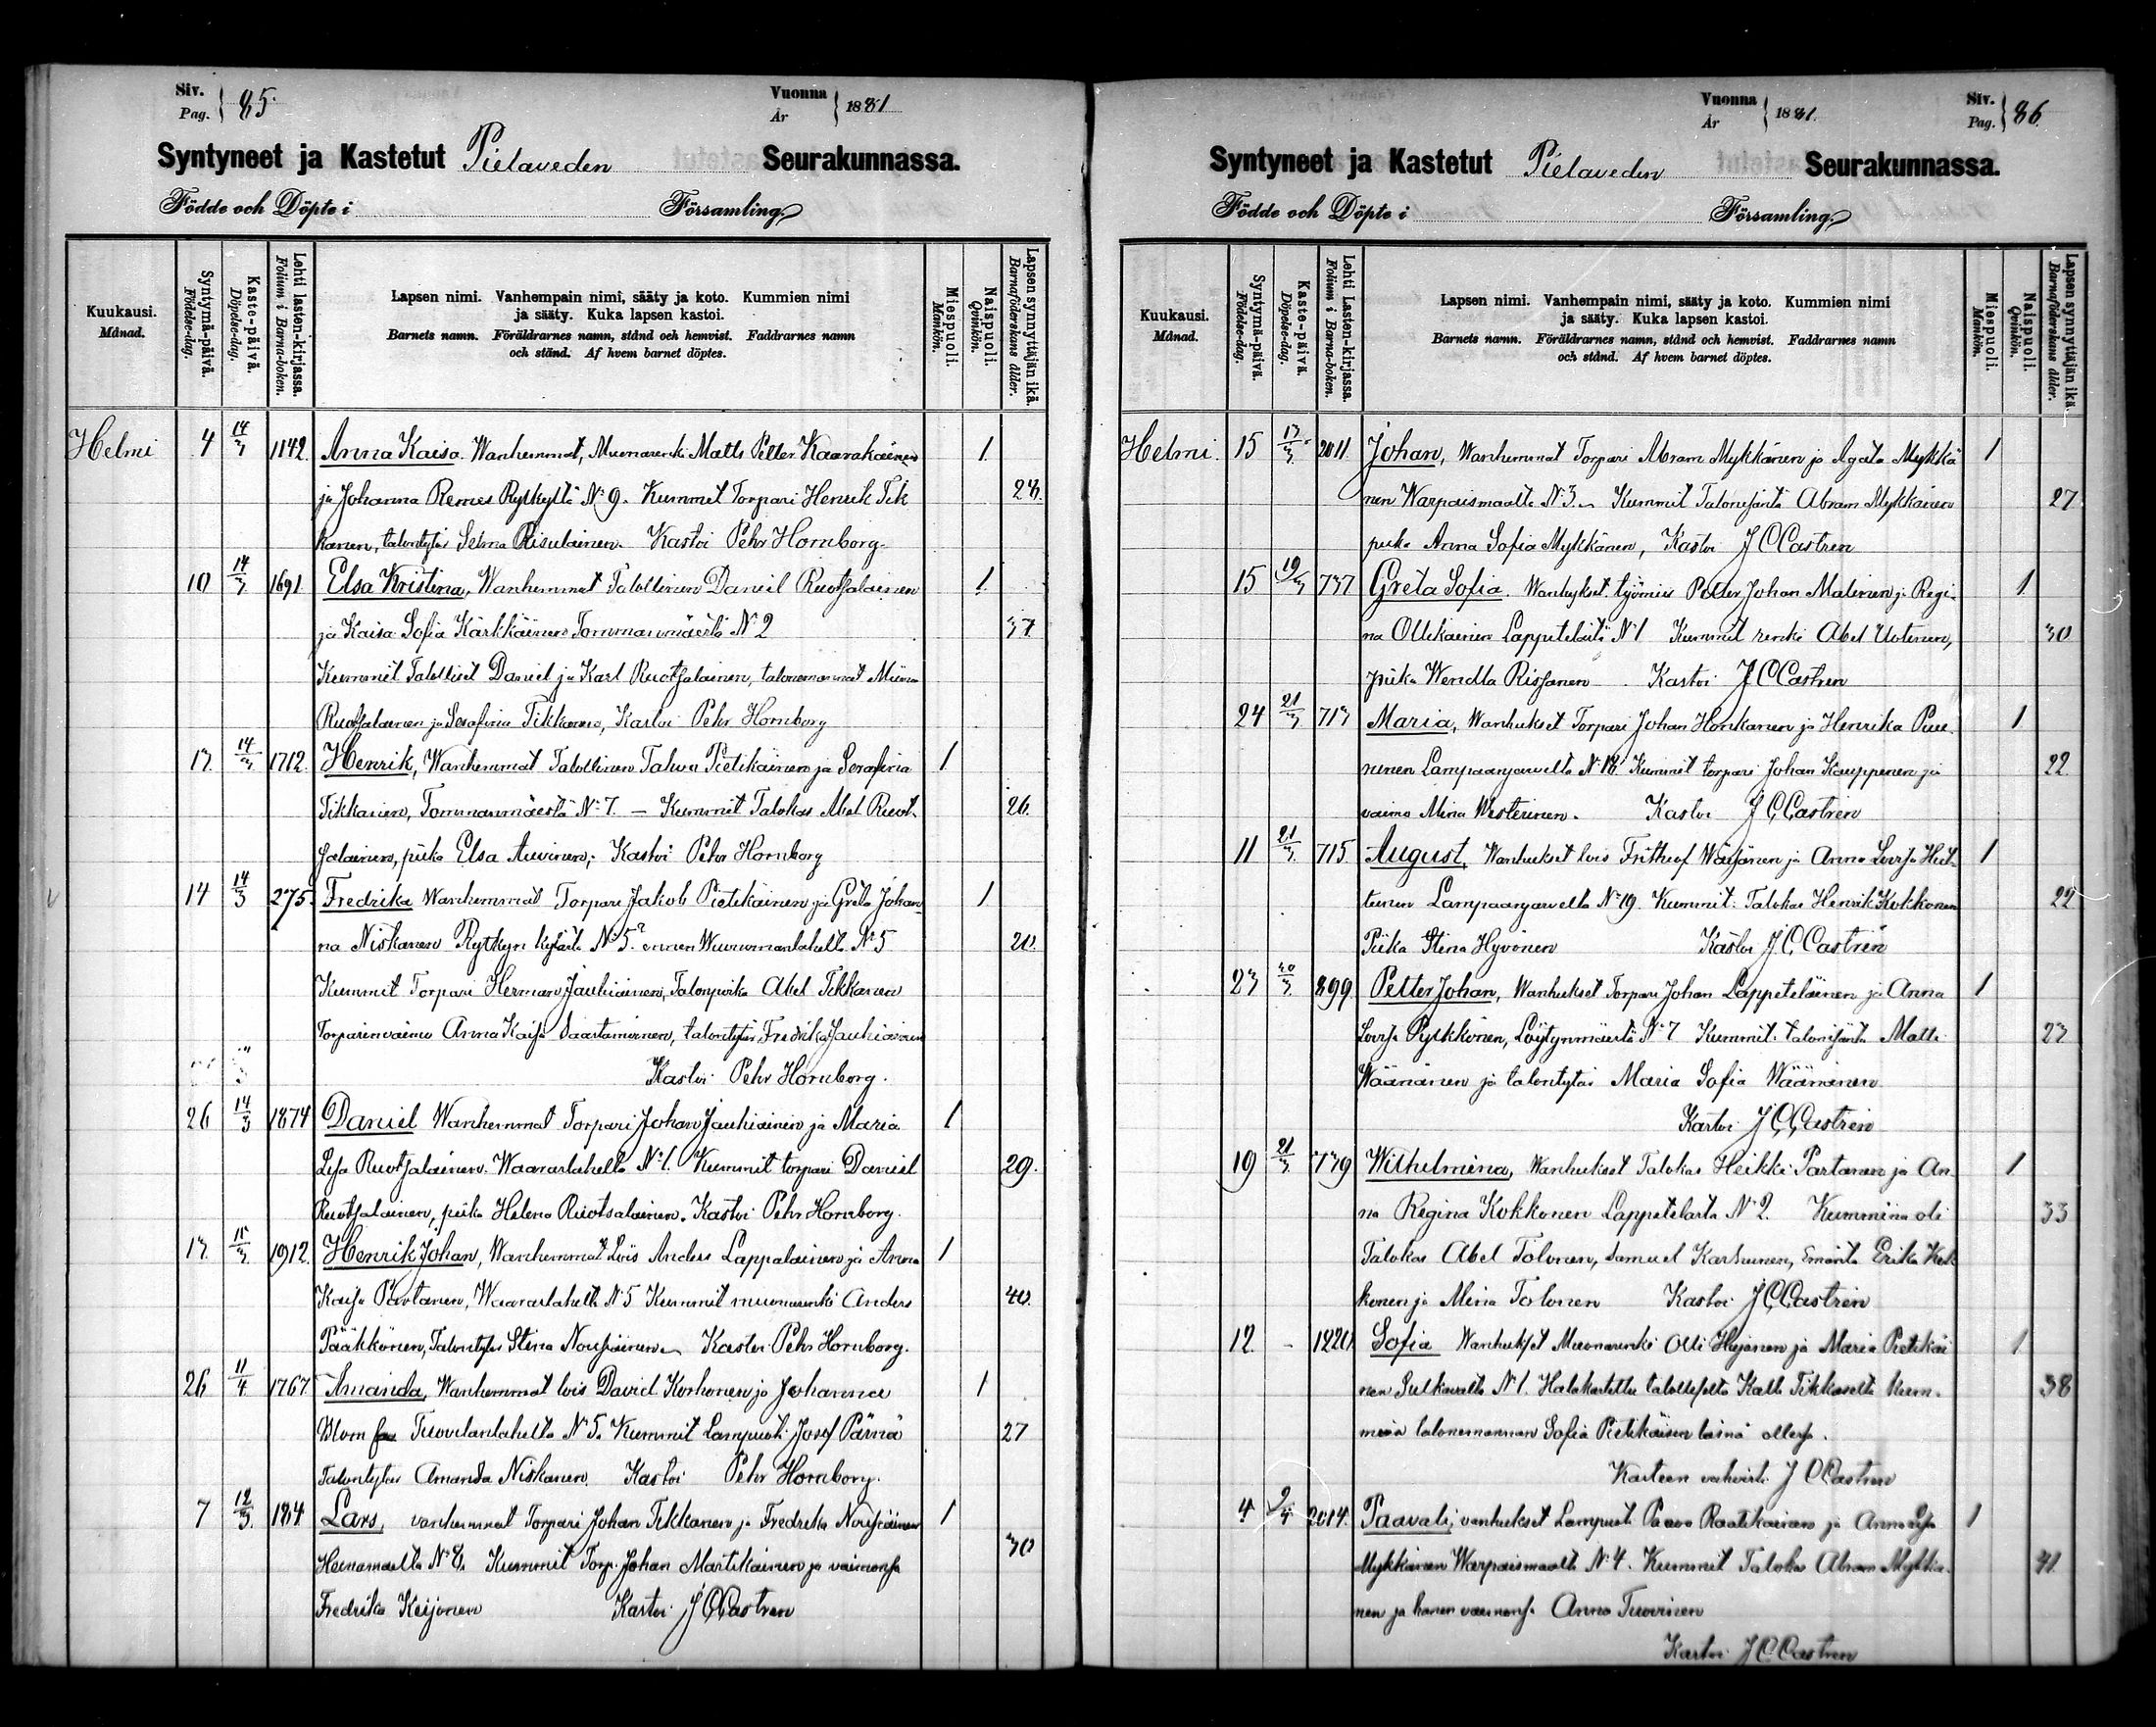 Siv.
Pag. 85.
Vuonna
År 1881
Syntyneet ja Kastetut Pielaveden Seurakunnassa.
Födde och Döpte i Församling.
Kuukausi.
Månad.
Syntymä-päivä.
Födelse-dag.
Kaste-päivä.
Döpelse-dag.
Lehti lasten-kirjassa.
Folium i Barna-boken.
Lapsen nimi. Vanhempain nimi, sääty ja koto. Kummien nimi
ja sääty. Kuka lapsen kastoi.
Barnets namn. Föräldrarnes namn, stånd och hemvist. Faddrarnes namn
och stånd. Af hvem barnet döptes.
Miespuoli.
Mankön.
Naispuoli.
Qvinkön.
Lapsen synnyttäjän ikä.
Barnaföderskans ålder.
Helmi 4 14/3 1142 Anna Kaisa. Wanhemmat, Muonarenki Matts Petter Kaarakainen 1
ja Johanna Remes Rytkyltä No 9. Kummit Torpari Henrik Tik 28.
kanen, talontytär Selma Risulainen. Kastoi Pehr Hornborg
10 14/3 1691 Elsa Kristina, Wanhemmat Talollinen Daniel Ruotsalainen 1
ja Kaisa Sofia Kärkkäinen Tommanmäestä No 2 37
Kummit Talolliset Daniel ja Karl Ruotsalainen, talonemännat
Ruotsalainen ja Serafina Tikkanen, Kastoi Pehr Hornborg
13 14/3 1712 Henrik, Wanhemmat Talollinen Pietikäinen ja Serafina 1
Tikkanen, Tommanmäestä No 7. — Kummit Talokas Abel Ruot- 26.
salainen, piika Elsa Auvinen; Kastoi Pehr Hornborg
14 14/3 275 Fredrika Wanhemmat Torpari Jakob Pietikäinen ja Greta Johan
na Niskanen Rytkyn kylästä No 5? ennen No 5 20.
Kummit Torpari Herman Jauhiainen, Talonpoika Abel Tikkanen
Torparinvaimo Anna Kaisa Saastamoinen, talontytär Fredrika Jauhiainen
Kastoi Pehr Hornborg.
26 14/3 1874 Daniel Wanhemmat Torpari Johan Jauhiainen ja Maria 1
Lisa Ruotsalainen. Waaraslahelta No 1. Kummit torpari Daniel 29.
Ruotsalainen, piika Helena Ruotsalainen. Kastoi Pehr Hornborg.
13 15/3 1912 Henrik Johan, Wanhemmat Lois Anders Lappalainen ja Anna 1
Kaisa Partanen, Waaraslahelta No 5 Kummit muonarenki Anders 40.
Pääkkönen, Talontytär Stina Nousiainen Kastoi Pehr Hornborg.
26 11/4 1767 Amanda, Wanhemmat lois David Korhonen ja Johanna 1
Blom Tuovilanlahelta No 5. Kummit Lampuoti Josef Pärnä 27
Talontytär Amanda Niskanen. Kastoi Pehr Hornborg.
7 12/3 184 Lars, vanhemmat Torpari Johan Tikkanen ja Fredrika Nousiainen 1
Heinamaelta No 8. Kummit Torp. Johan Martikainen ja vaimonsa 30
Fredrika Keijonen Kastoi J C Castren
Vuonna
År 1881.
Siv.
Pag. 86.
Syntyneet ja Kastetut Pielaveden Seurakunnassa.
Födde och Döpte i Församling.
Kuukausi.
Månad.
Syntymä-päivä.
Födelse-dag.
Kaste-päivä.
Döpelse-dag.
Lehti lasten-kirjassa.
Folium i Barna-boken.
Lapsen nimi. Vanhempain nimi, sääty ja koto. Kummien nimi
ja sääty. Kuka lapsen kastoi.
Barnets namn. Föräldrarnes namn, stånd och hemvist. Faddrarnes namn
och stånd. Af hvem barnet döptes.
Miespuoli.
Mankön.
Naispuoli.
Qvinkön.
Lapsen synnyttäjän ikä.
Barnaföderskans ålder.
Helmi. 15 13/3 2011. Johan, Wanhemmat Torpari Abram Mykkänen ja Agata Mykkä 1
nen Warpaismaalta No 3. Kummit Talonisäntä Abram Mykkänen 27
piika Anna Sofia Mykkänen, Kastoi J C Castren
15 19/3 737 Greta Sofia. Wanhukset työmies Petter Johan Malinen ja Regi- 1
na Ollikainen Lappetelältä No 1 Kummit renki Abel Uotinen, 30
piika Wendla Rissanen Kastoi J C Castren
24 21/3 713 Maria, Wanhukset Torpari Johan Honkanen ja Henrika Puu- 1
runen Lampaanjarvelta No 18. Kummit torpari Johan Kauppinen ja 22.
vaimo Mina Westerinen. Kastoi J C Castren
11 21/3 715. August, Wanhukset lois Frithiof Wäisänen ja Anna Lovisa Hut- 1
tunen Lampaanjarvelta No 19. Kummit. Talokas Henrik Kokkonen 22
Piika Stina Hyvönen Kastoi J. C. Castren
23 20/3 899 Petter Johan, Wanhukset Torpari Johan Lappeteläinen ja Anna 1
Lovisa Pyykkönen, Löytynmäestä No 7 Kummit. talonisäntä Matti 23
Wäänänen ja talontytär Maria Sofia Wäänänen
Kastoi J C Castren
19 21/3 739 Wilhelmina, Wanhukset Talokas Heikki Partanen ja An- 1
na Regina Kokkonen Lappetelasta No 2. Kummina oli 33
Talokas Abel Tolonen, Samuel Karhunen, Emäntä Erika Kok
konen ja Mina Tolonen Kastoi J C Castren
12. - 1220 Sofia Wanhukset Muonarenki Olli Hujanen ja Maria Pietikäi 1
nen Sulkavalta No 1. Hätäkastettu Kalle Tikkaselta Kum- 38
mina talonemannan Sofia Pietikäisen läsnä ollessa.
Kasteen vahvisti J C Castren
4 9/4 2014. Paavali, vanhukset Lampuoti Paavo Raatikainen ja Anna Lisa 1
Mykkänen Warpaismaalta No 4. Kummit Talokas Abram Mykkä- 41
nen ja hänen vaimonsa Anna Tuovinen
Kastoi J C Castren